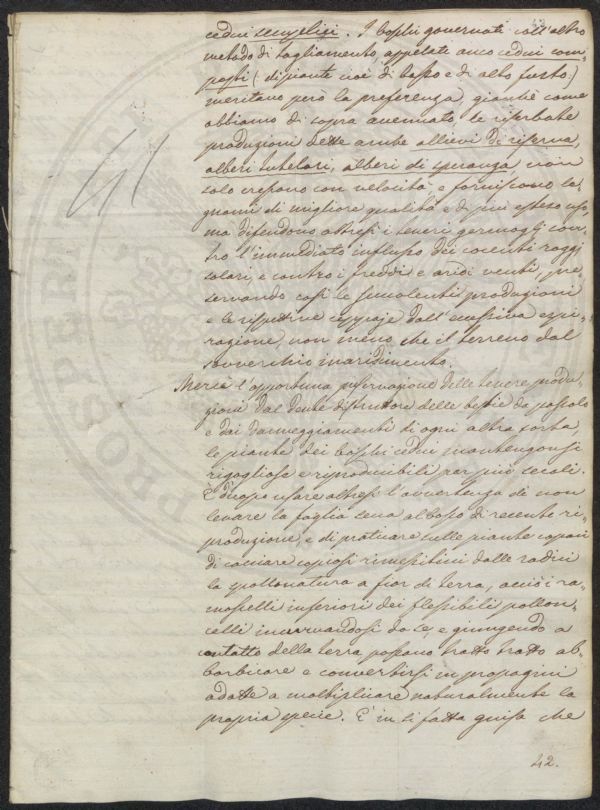 cedui semplici. I boschi governati coll'altro
metodo di tagliamento, appelate anco cedui com-
posti (di piante cioè di basso e di alto fusto)
meritano però la preferenza, giacchè come
abbiamo di sopra accennato, le riserbate
produzioni dette anche allievi di riserva,
alberi tutelari, alberi di speranza, non
solo crescono con velocità, e forniscono le-
gnami di migliore qualità e di più esteso uso,
ma difendono altresì i teneri germogli con-
tro l'immediato influsso dei cocenti raggi
solari, e contro i freddi e aridi venti, pre-
servando così le semolenti produzioni
e le rispettive ceppaje dall'eccessiva
razione, non meno che il terreno dal
soverchio inaridimento.
Mercè l'opportuna preservazione delle tenere produ-
zioni dal dente distruttore delle bestie da pascolo
e dai danneggiamenti di ogni altra sorta,
le piante dei boschi cedui mantengonsi
rigogliose e riproducibili per più secoli.
È d'uopo usare altresì l'avvertenza di non
levare la foglia secca al bosco di recente ri-
produzione, e di praticare sulle piante capaci
di cacciare copiosi rimessiticci dalle radici
la spollonatura a fior di terra, acciò i ra-
moscelli inferiori dei flessibili pollon-
celli incurvandosi da se, e giungendo a
contatto della terra possano tratto tratto ab-
barbicare e convertirsi in propagini
adatte a moltiplicare naturalmente la
propria specie. E in sì fatta guisa che
42.
PROSPERITATI